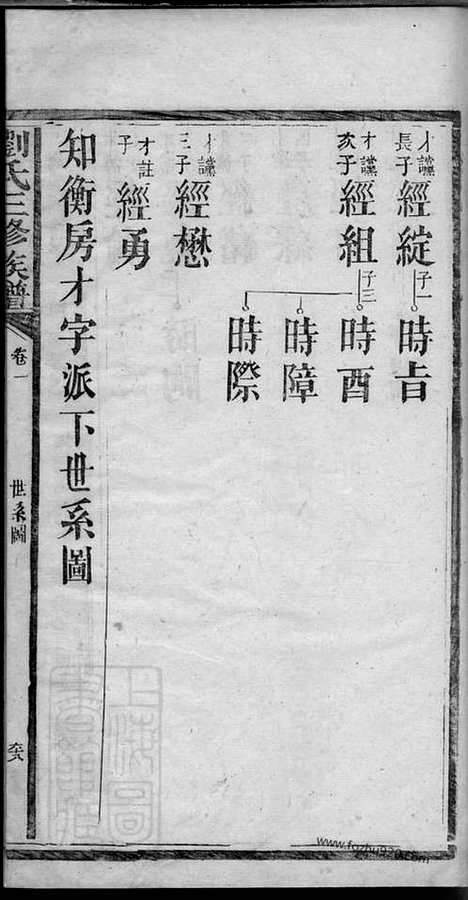 才讜長子 經綻 子一 時㫖
才讜次子 經組 子三 時酉
時障
時際
才讜三子 經懋
才註子 經勇
知衡房才字派下世系圖
劉氏三修族譜 卷一 世系圖
www.fozhu920.com